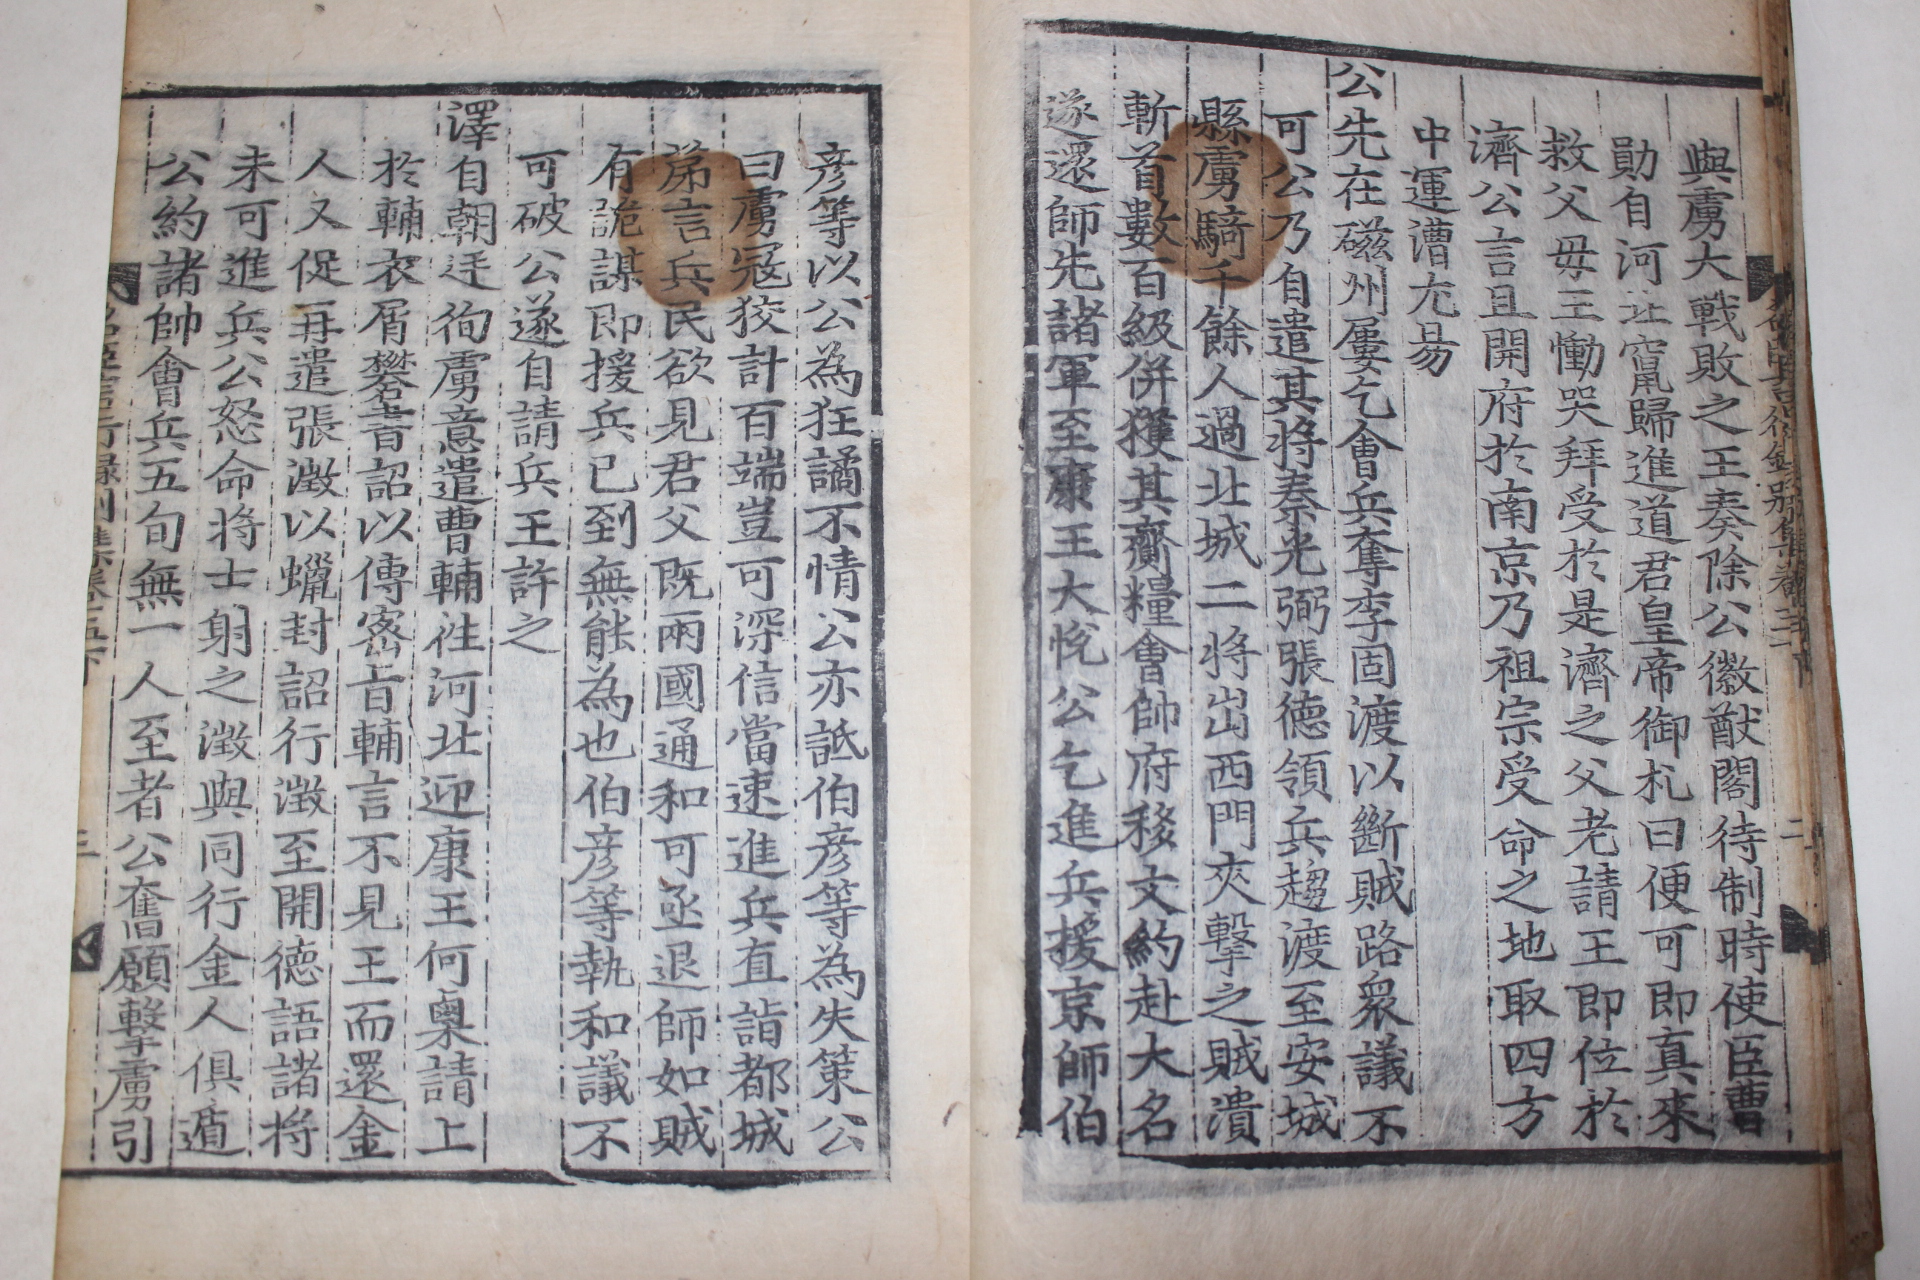 與虜大戰敗之王奏除公徽猷閣待制時使臣曹
勛自河北竄歸進道君皇帝御札曰便可即真來
救父母王慟哭拜受於是濟之父老請王即位於
濟公言且開府於南京乃祖宗受命之地取四方
中運漕尤易
公先在磁州屢乞會兵奪李固渡以斷賊路衆議不
可公乃自遣其將秦光弼張德領兵趨渡至安城
縣虜騎千餘人過北城二將出西門夾擊之賊潰
斬首數百級併獲其齎糧會帥府移文約赴大名
遂還師先諸軍至康王大悅公乞進兵援京師伯
彦等以公為狂譎不情公亦詆伯彦等為失策公
曰虜冦狡計百端豈可深信當速進兵直詣都城
第言兵民欲見君父既兩國通和可亟退師如賊
有詭謀即援兵已到無能為也伯彦等執和議不
可破公遂自請兵王許之
澤自朝廷徇虜意遣曹輔往河北迎康王何㮚請上
於輔衣屑礬書詔以傳密旨輔言不見王而還金
人又促再遣張澂以蠟封詔行澂至開德語諸將
未可進兵公怒命將士射之澂與同行金人俱遁
公約諸帥會兵五旬無一人至者公奮願擊虜引